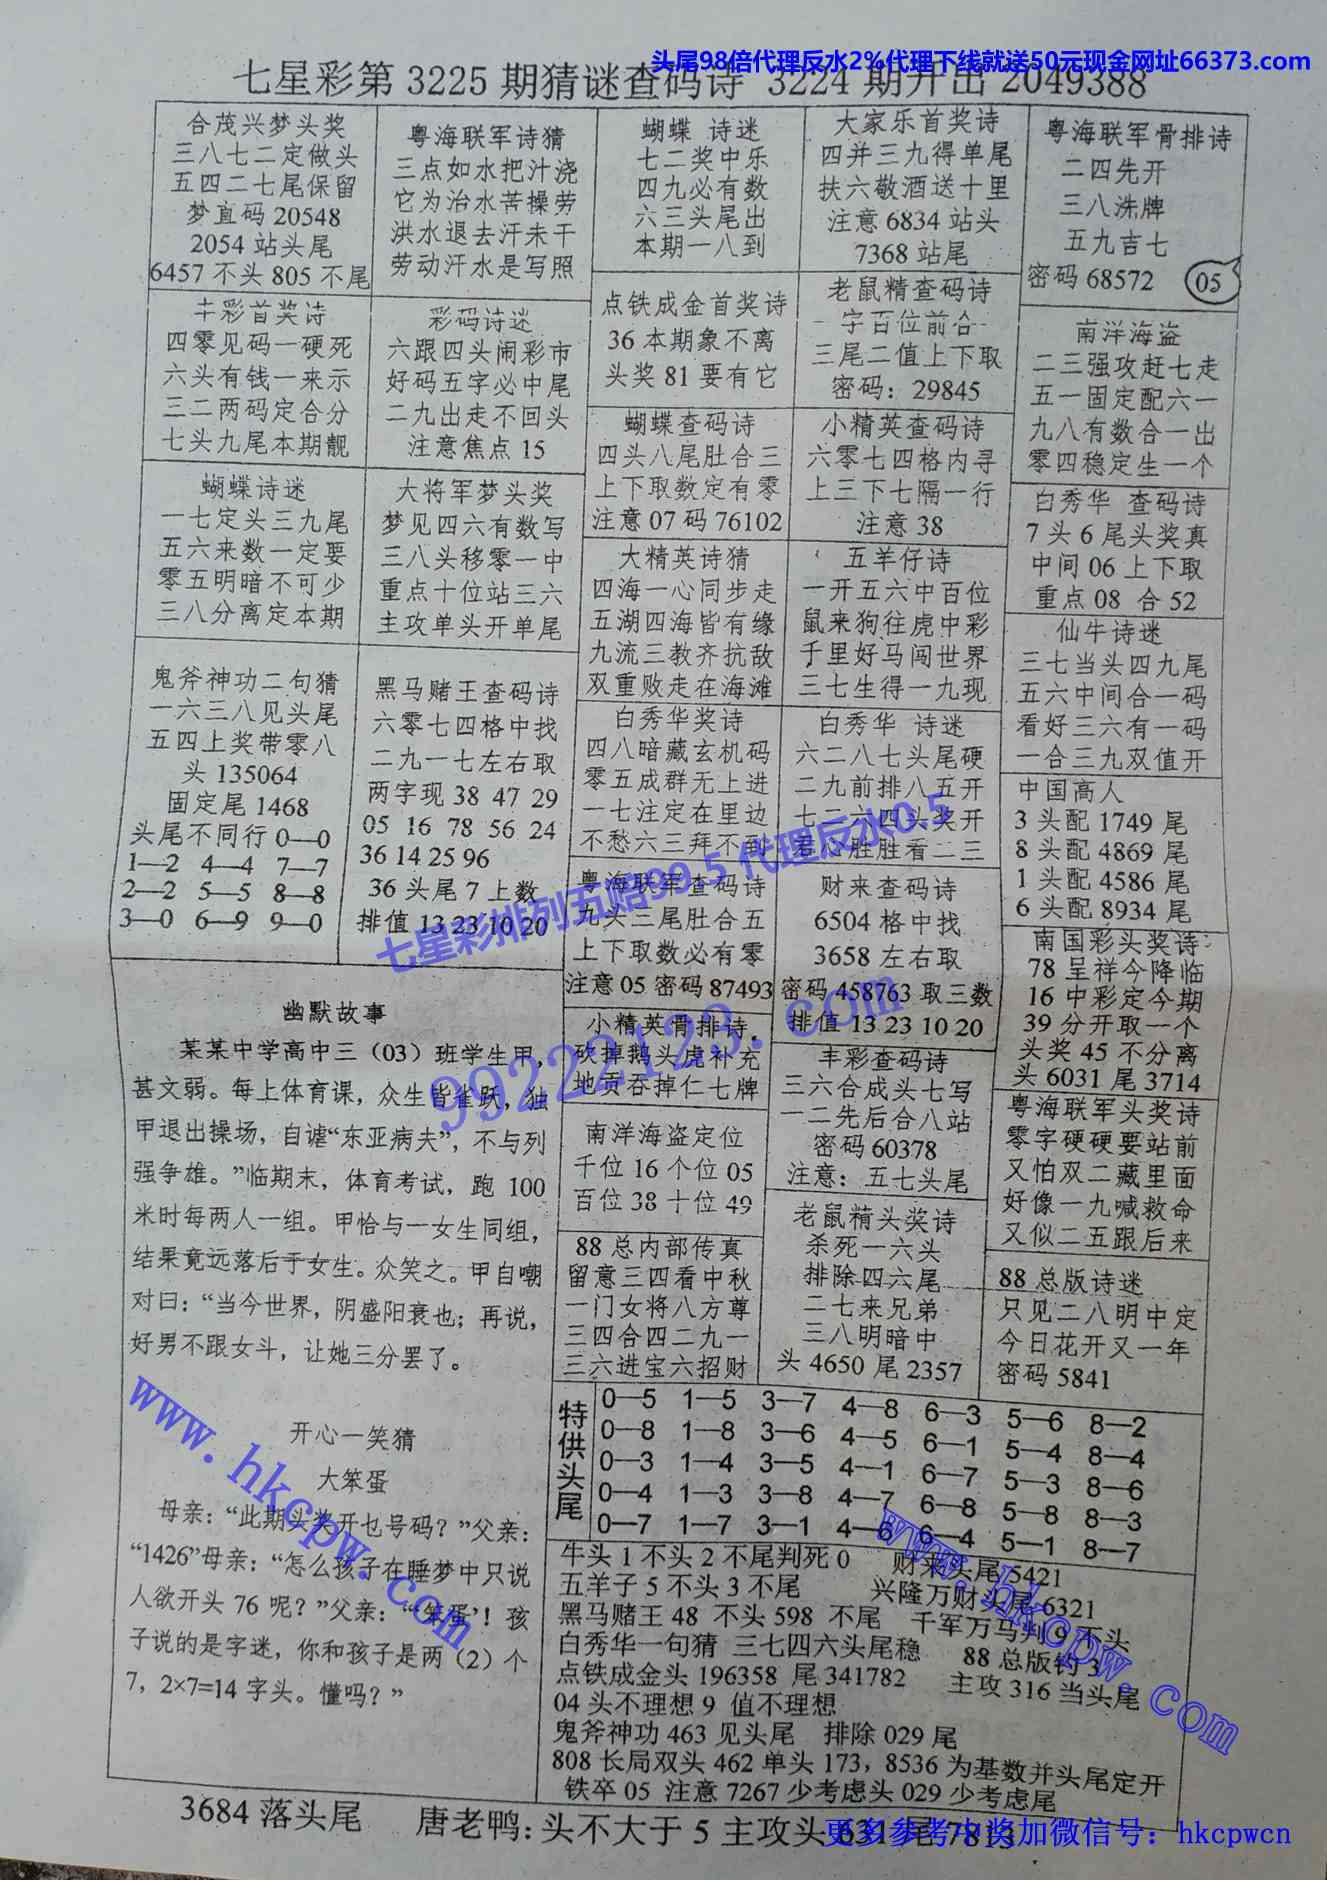 头尾98倍代理反水2%代理下线就送50元现金网址66373.com
七星彩第3225期猜谜查码诗 3224期开出2049388
合茂兴梦头奖
三八七二定做头
五四二七尾保留
梦直码20548
2054站头尾
6457不头805不尾
丰彩首奖诗
四零见码一硬死
六头有钱一来示
三二两码定合分
七头九尾本期靓
蝴蝶诗迷
一七定头三九尾
五六来数一定要
零五明暗不可少
三八分离定本期
鬼斧神功二句猜
一六三八见头尾
五四上奖带零八
头135064
固定尾1468
头尾不同行0—0
1—2 4—4 7—7
2—2 5—5 8—8
3—0 6—9 9—0
粤海联军诗猜
三点如水把汁浇
它为治水苦操劳
洪水退去汗未干
劳动汗水是写照
彩码诗迷
六跟四头闹彩市
好码五字必中尾
二九出走不回头
注意焦点15
大将军梦头奖
梦见四六有数写
三八头移零一中
重点十位站三六
主攻单头开单尾
黑马赌王查码诗
六零七四格中找
二九一七左右取
两字现38 47 29
05 16 78 56 24
36 14 25 96
36头尾7上数
排值13 23 10 20
蝴蝶 诗迷
七二奖中乐
四九必有数
六三头尾出
本期一八到
点铁成金首奖诗
36本期象不离
头奖81要有它
蝴蝶查码诗
四头八尾肚合三
上下取数定有零
注意07码76102
大精英诗猜
四海一心同步走
五湖四海皆有缘
九流三教齐抗敌
双重败走在海滩
白秀华奖诗
四八暗藏玄机码
零五成群无上进
一七注定在里边
不愁六三拜不到
粤海联军查码诗
九头三尾肚合五
上下取数必有零
注意05密码87493
小精英骨排诗
砍掉鹅头虎补充
地贡吞掉仁七牌
南洋海盗定位
千位16个位05
百位38十位49
88总内部传真
留意三四看中秋
一门女将八方尊
三四合四二九一
三六进宝六招财
大家乐首奖诗
四并三九得单尾
扶六敬酒送十里
注意6834站头
7368站尾
老鼠精查码诗
一字百位前合一
三尾二值上下取
密码：29845
小精英查码诗
六零七四格内寻
上三下七隔一行
注意38
五羊仔诗
一开五六中百位
鼠来狗往虎中彩
千里好马闯世界
三七生得一九现
白秀华 诗迷
六二八七头尾硬
二九前排八五开
七二六四头奖开
君心胜胜看二三
财来查码诗
6504格中找
3658左右取
密码458763取三数
排值13 23 10 20
丰彩查码诗
三六合成头七写
一二先后合八站
密码60378
注意：五七头尾
老鼠精头奖诗
杀死一六头
排除四六尾
二七来兄弟
三八明暗中
头4650尾2357
粤海联军骨排诗
二四先开
三八洗牌
五九吉七
密码68572 05
南洋海盗
二三强攻赶七走
五一固定配六一
九八有数合一出
零四稳定生一个
白秀华 查码诗
7头6尾头奖真
中间06上下取
重点08 合52
仙牛诗迷
三七当头四九尾
五六中间合一码
看好三六有一码
一合三九双值开
中国高人
3头配1749尾
8头配4869尾
1头配4586尾
6头配8934尾
南国彩头奖诗
78呈祥今降临
16中彩定今期
39分开取一个
头奖45不分离
头6031尾3714
粤海联军头奖诗
零字硬硬要站前
又怕双二藏里面
好像一九喊救命
又似二五跟后来
88总版诗迷
只见二八明中定
今日花开又一年
密码5841
幽默故事
某某中学高中三（03）班学生甲，
甚文弱。每上体育课，众生皆雀跃，独
甲退出操场，自谑“东亚病夫”，不与列
强争雄。”临期末，体育考试，跑100
米时每两人一组。甲恰与一女生同组，
结果竟远落后于女生。众笑之。甲自嘲
对曰：“当今世界，阴盛阳衰也；再说，
好男不跟女斗，让她三分罢了。
开心一笑猜
大笨蛋
母亲：“此期头奖开乜号码？”父亲：
“1426”母亲：“怎么孩子在睡梦中只说
人欲开头76呢？”父亲：“‘笨蛋’！孩
子说的是字迷，你和孩子是两（2）个
7，2×7=14字头。懂吗？”
特供头尾
0—5 1—5 3—7 4—8 6—3 5—6 8—2
0—8 1—8 3—6 4—5 6—1 5—4 8—4
0—3 1—4 3—5 4—1 6—7 5—3 8—6
0—4 1—3 3—8 4—7 6—8 5—8 8—3
0—7 1—7 3—1 4—6 6—4 5—1 8—7
牛头1不头2不尾判死0 财来头尾5421
五羊子5不头3不尾 兴隆万财头尾6321
黑马赌王48 不头598 不尾 千军万马判9不头
白秀华一句猜 三七四六头尾稳 88总版钓3
点铁成金头196358 尾341782 主攻316当头尾
04头不理想9 值不理想
鬼斧神功463见头尾 排除029尾
808长局双头462单头173，8536为基数并头尾定开
铁卒05 注意7267少考虑头029少考虑尾
3684落头尾 唐老鸭：头不大于5主攻头631尾7813
更多参考中奖加微信号：hkcpwcn
七星彩排列五赔99.5代理反水0.5
99222123.com
www.hkcpw.com
www.hkcpw.com